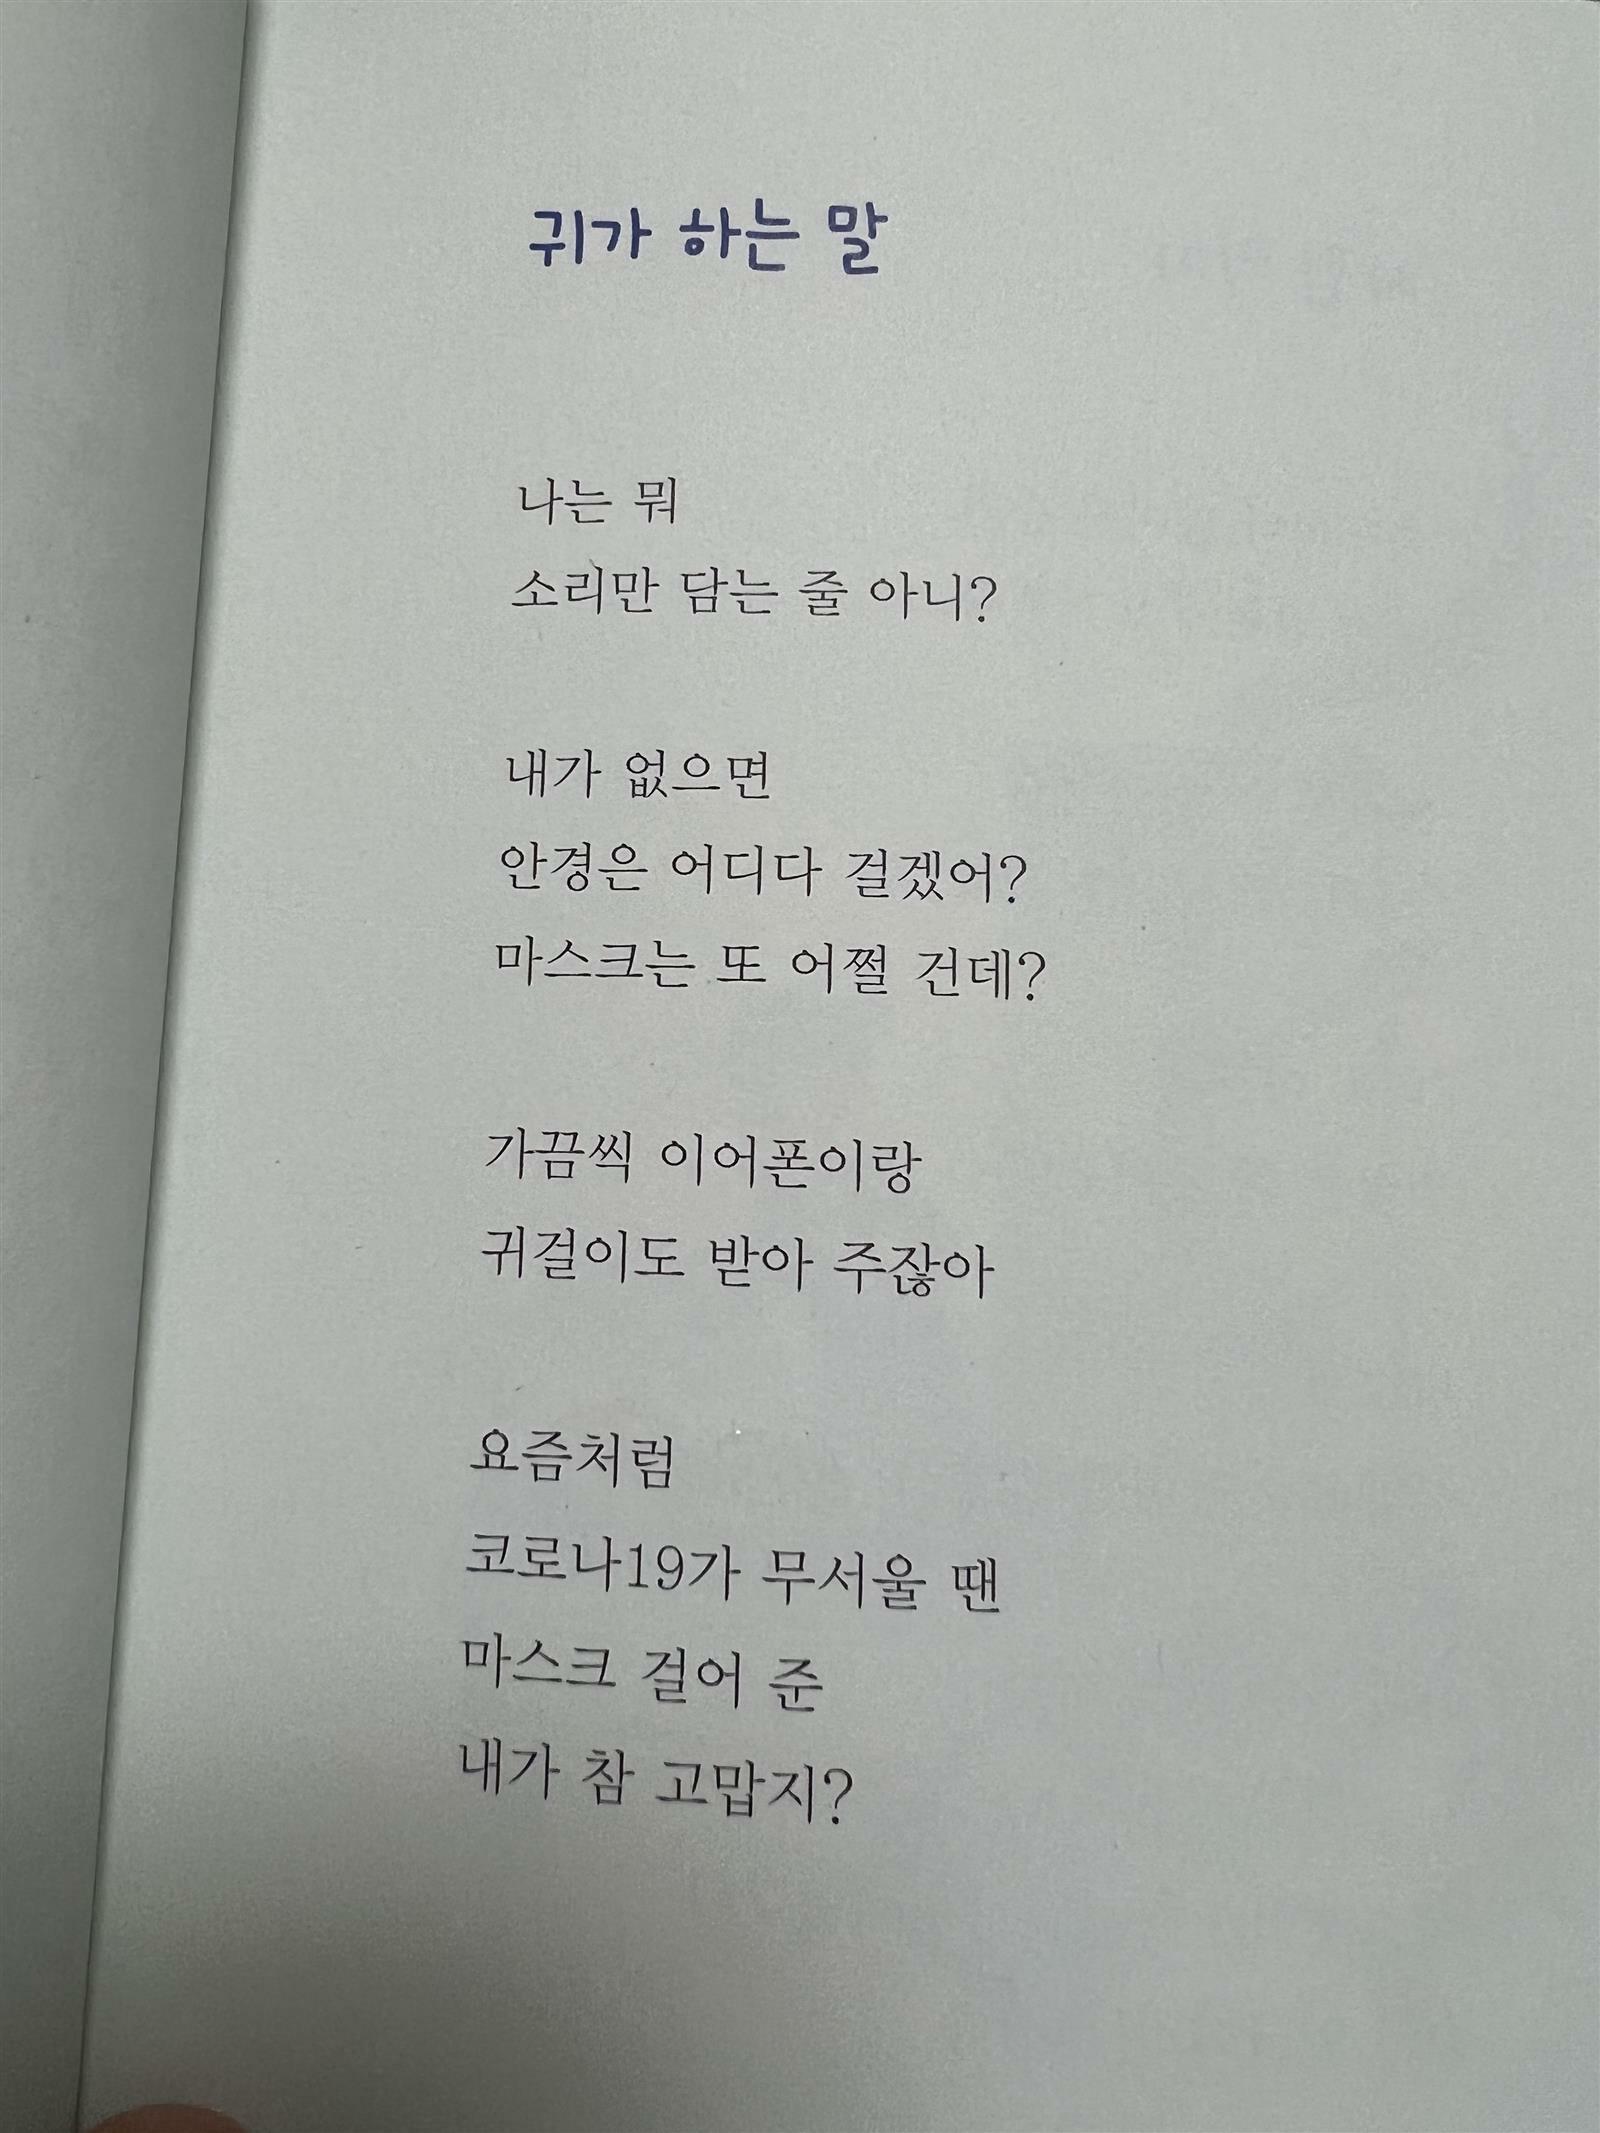 귀가 하는 말
나는 뭐
소리만 담는 줄 아니?
내가 없으면
안경은 어디다 걸겠어?
마스크는 또 어쩔 건데?
가끔씩 이어폰이랑
귀걸이도 받아 주잖아
요즘처럼
코로나19가 무서울 땐
마스크 걸어 준
내가 참 고맙지?